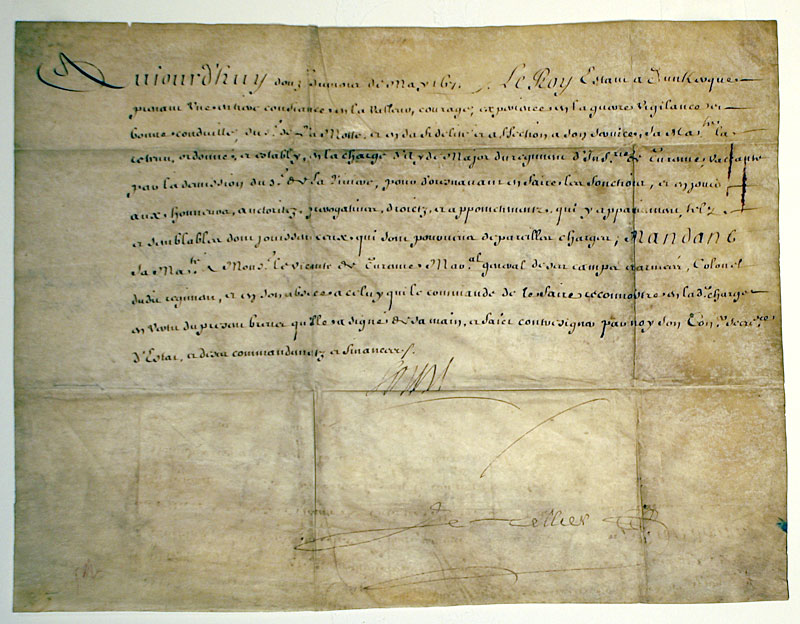 Aujourd'huy douziesme de May 1671 Le Roy Estant a Dunkerque
prenant une entiere confiance en la valleur, courage, experience en la guerre vigilance et
bonne conduitte, du Sr. de La Motte, et en sa fidelité et affection a son service, Sa Maté. la
retenu, ordonné, et estably, en la charge d'Ayde Major du regiment d'Infrie de Turenne, vaccante
par la demission du Sr. de La, pour d'oresnavant en faire les fonctions, et en jouir
aux honneurs, auctoritez, prerogatives, droictz, et appointements, qui y appartiennent, telz
et semblables dont jouissent ceux, qui sont pourveus de pareilles charges, Mandant
Sa Maté. a Monsr. le vicomte de Turenne Maral. general de ses camps et armées, Colonel
dudit regiment, et en son absence a celuy qui le commande de le faire reconnoistre en lad. charge
en vertu du present brevet qu'elle a signé de sa main, et faict contresigner par moy son Conr. Secrere
d'Estat, et de ses commandementz et finances.
Louis
Le Tellier